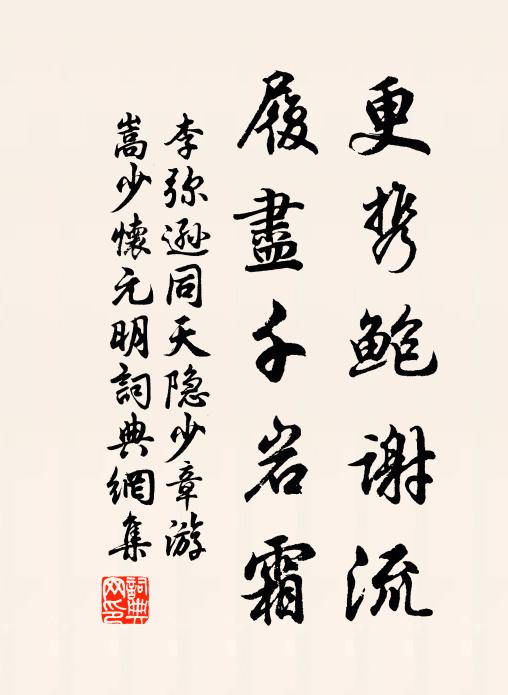 更携鲍谢流
履盡千岩霜
李弥遜同天隐少章游
嵩少懷元明詞典網集
詞典網印